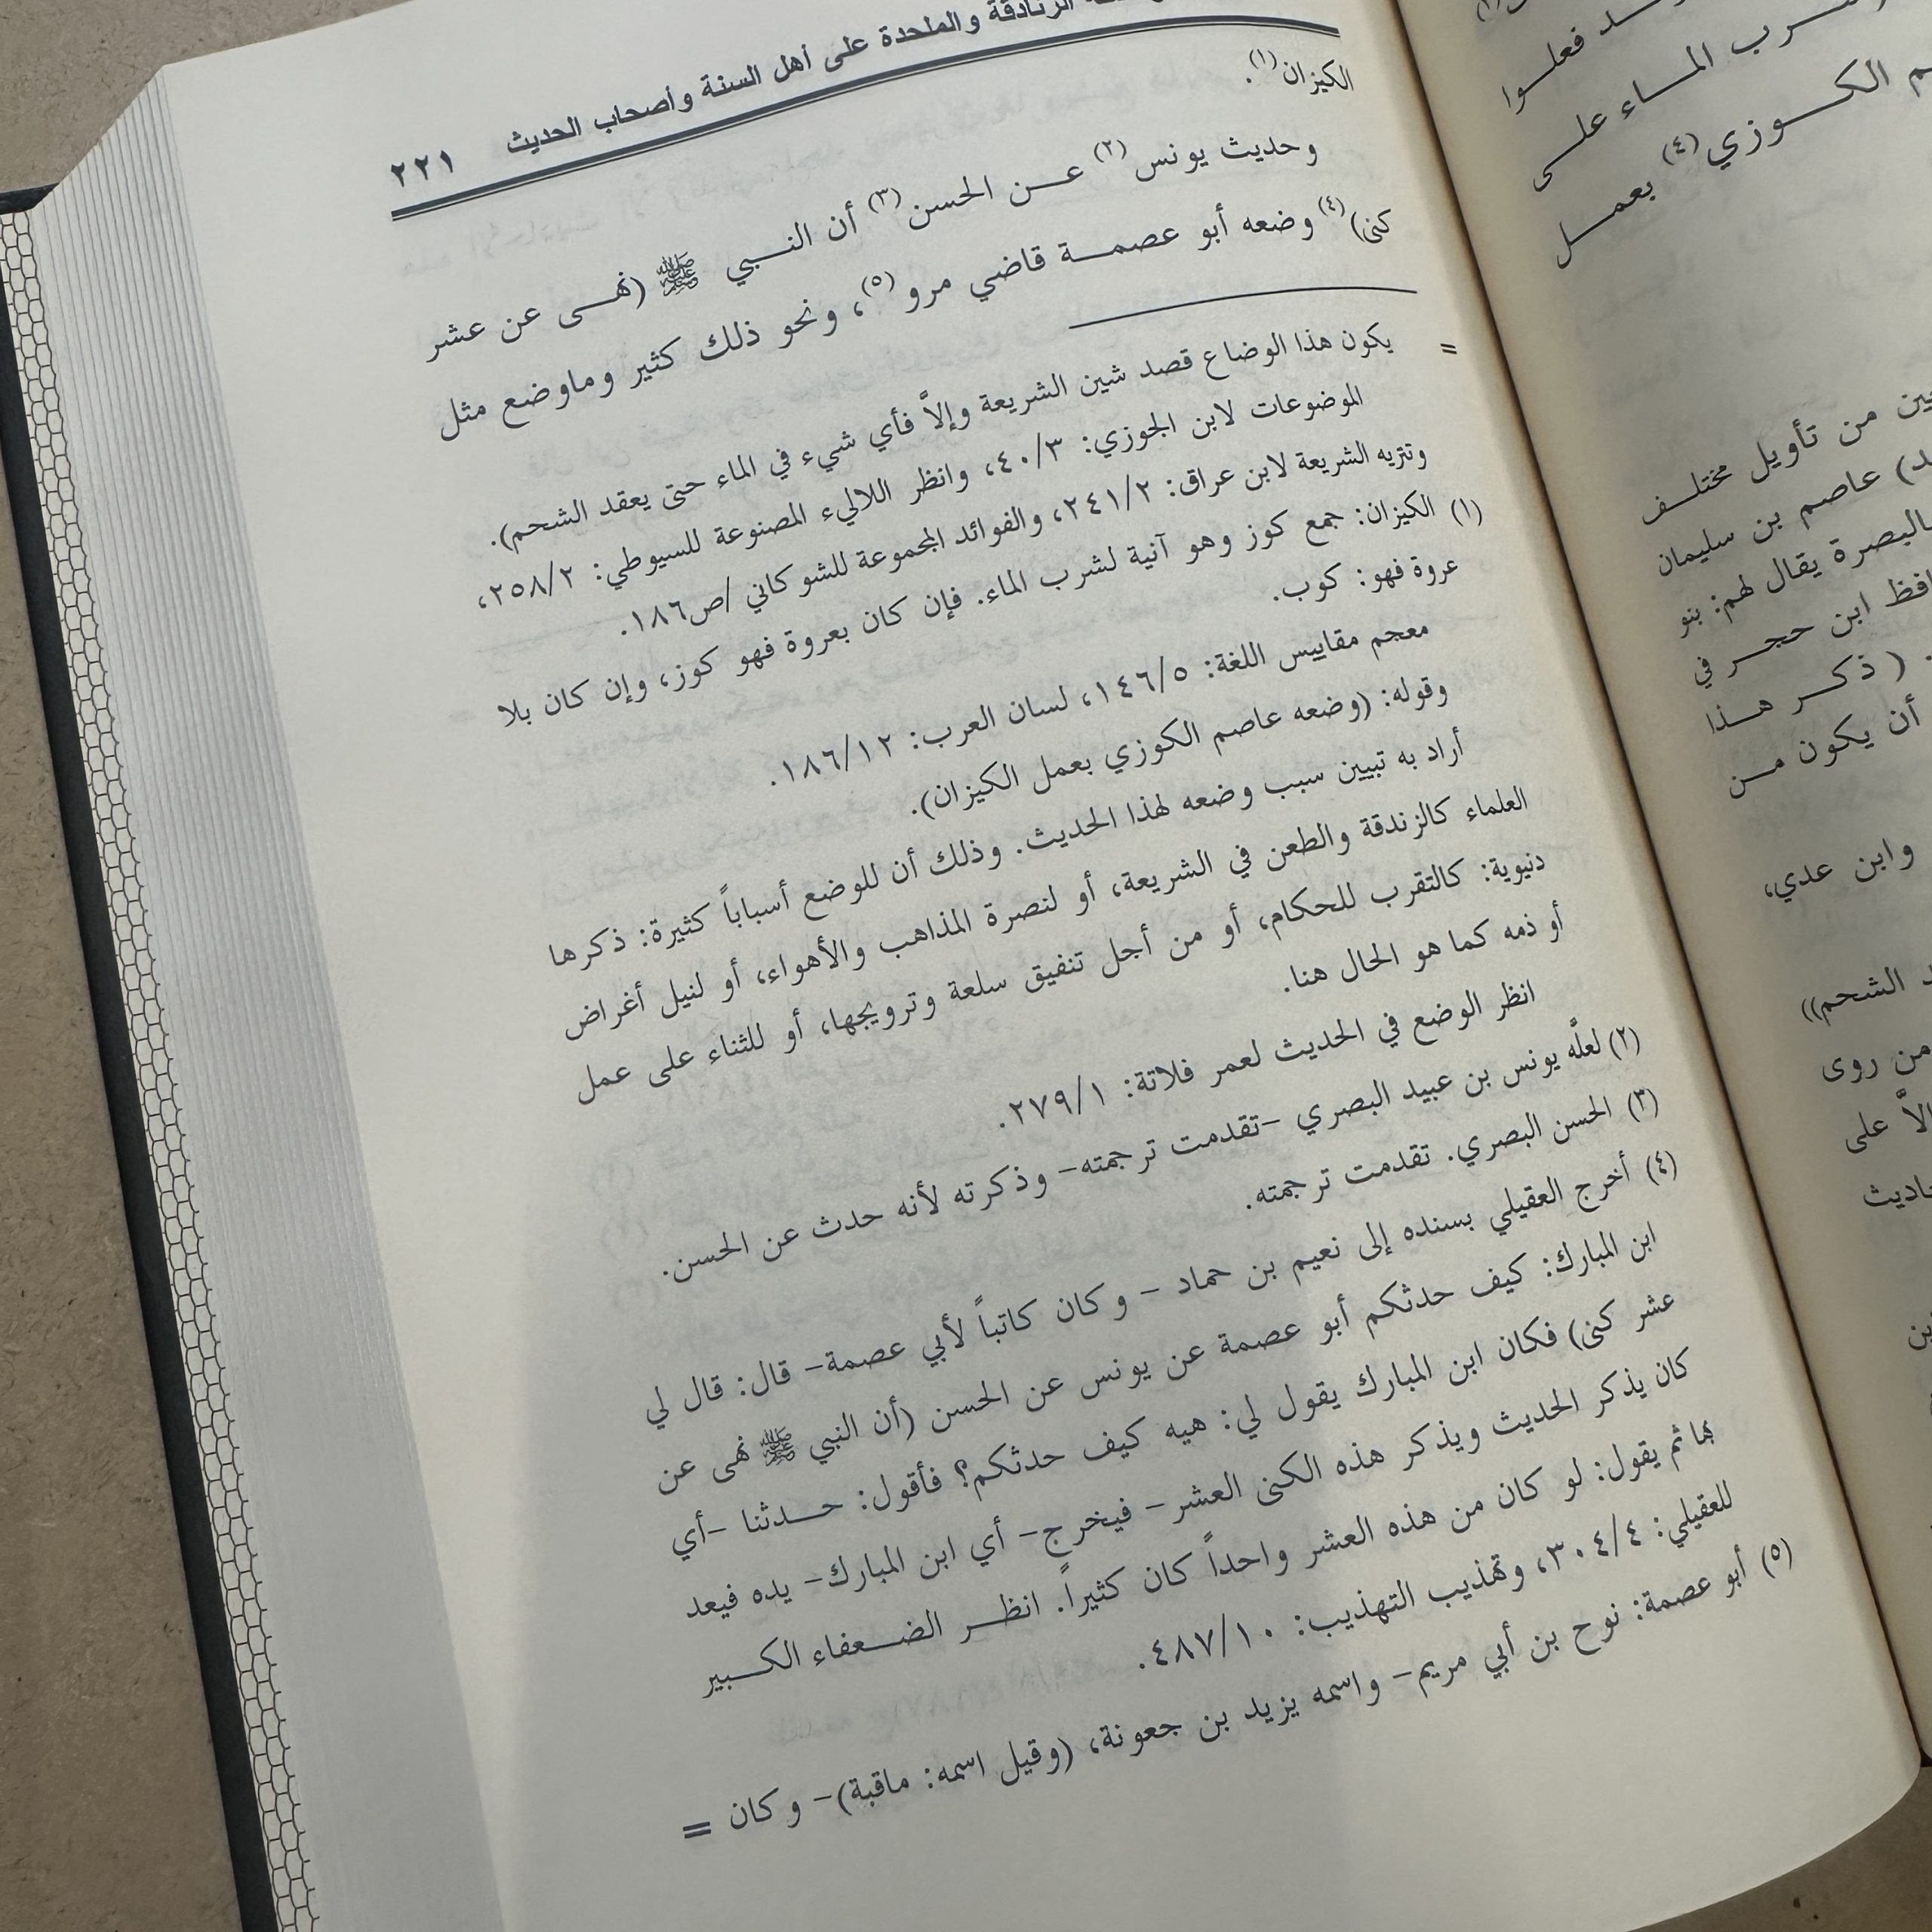 الزنادقة والملحدة على أهل السنة وأصحاب الحديث ٢٢١
الكيزان(١).
وحديث يونس(٢) عن الحسن(٣) أن النبي ﷺ (نهى عن عشر
كنى)(٤) وضعه أبو عصمة قاضي مرو(٥)، ونحو ذلك كثير وماوضع مثل
= يكون هذا الوضاع قصد شين الشريعة وإلاَّ فأي شيء في الماء حتى يعقد الشحم).
الموضوعات لابن الجوزي: ٤٠/٣، وانظر اللاليء المصنوعة للسيوطي: ٢٥٨/٢،
وتتريه الشريعة لابن عراق: ٢٤١/٢، والفوائد المجموعة للشوكاني /ص١٨٦.
(١) الكيزان: جمع كوز وهو آنية لشرب الماء. فإن كان بعروة فهو كوز، وإن كان بلا
عروة فهو: كوب.
معجم مقاييس اللغة: ١٤٦/٥، لسان العرب: ١٨٦/١٢.
وقوله: (وضعه عاصم الكوزي بعمل الكيزان).
أراد به تبيين سبب وضعه لهذا الحديث. وذلك أن للوضع أسباباً كثيرة: ذكرها
العلماء كالزندقة والطعن في الشريعة، أو لنصرة المذاهب والأهواء، أو لنيل أغراض
دنيوية: كالتقرب للحكام، أو من أجل تنفيق سلعة وترويجها، أو للثناء على عمل
أو ذمه كما هو الحال هنا.
انظر الوضع في الحديث لعمر فلاتة: ٢٧٩/١.
(٢) لعلَّه يونس بن عبيد البصري –تقدمت ترجمته– وذكرته لأنه حدث عن الحسن.
(٣) الحسن البصري. تقدمت ترجمته.
(٤) أخرج العقيلي بسنده إلى نعيم بن حماد – وكان كاتباً لأبي عصمة– قال: قال لي
ابن المبارك: كيف حدثكم أبو عصمة عن يونس عن الحسن (أن النبي ﷺ نهى عن
عشر كنى) فكان ابن المبارك يقول لي: هيه كيف حدثكم؟ فأقول: حدثنا –أي
كان يذكر الحديث ويذكر هذه الكنى العشر– فيخرج– أي ابن المبارك– يده فيعد
بها ثم يقول: لو كان من هذه العشر واحداً كان كثيراً. انظر الضعفاء الكبير
للعقيلي: ٣٠٤/٤، وتهذيب التهذيب: ٤٨٧/١٠.
(٥) أبو عصمة: نوح بن أبي مريم– واسمه يزيد بن جعونة، (وقيل اسمه: ماقبة)– وكان =
فعلوا
شرب الماء على
الكوزي(٤) بعمل
من تأويل مختلف
عاصم بن سليمان
بالبصرة يقال لهم: بنو
ابن حجر في
(ذكر هذا
أن يكون من
وابن عدي،
الشحم))
من روى
إلاَّ على